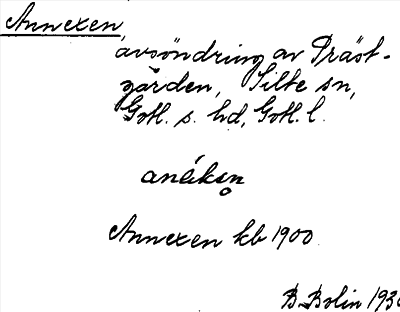 Annexen,
avsöndring av Präst-
gården, Silte sn,
Gotl. s. hd, Gotl. l.
anéksn
Annexen kb 1900.
B. Bolin 193